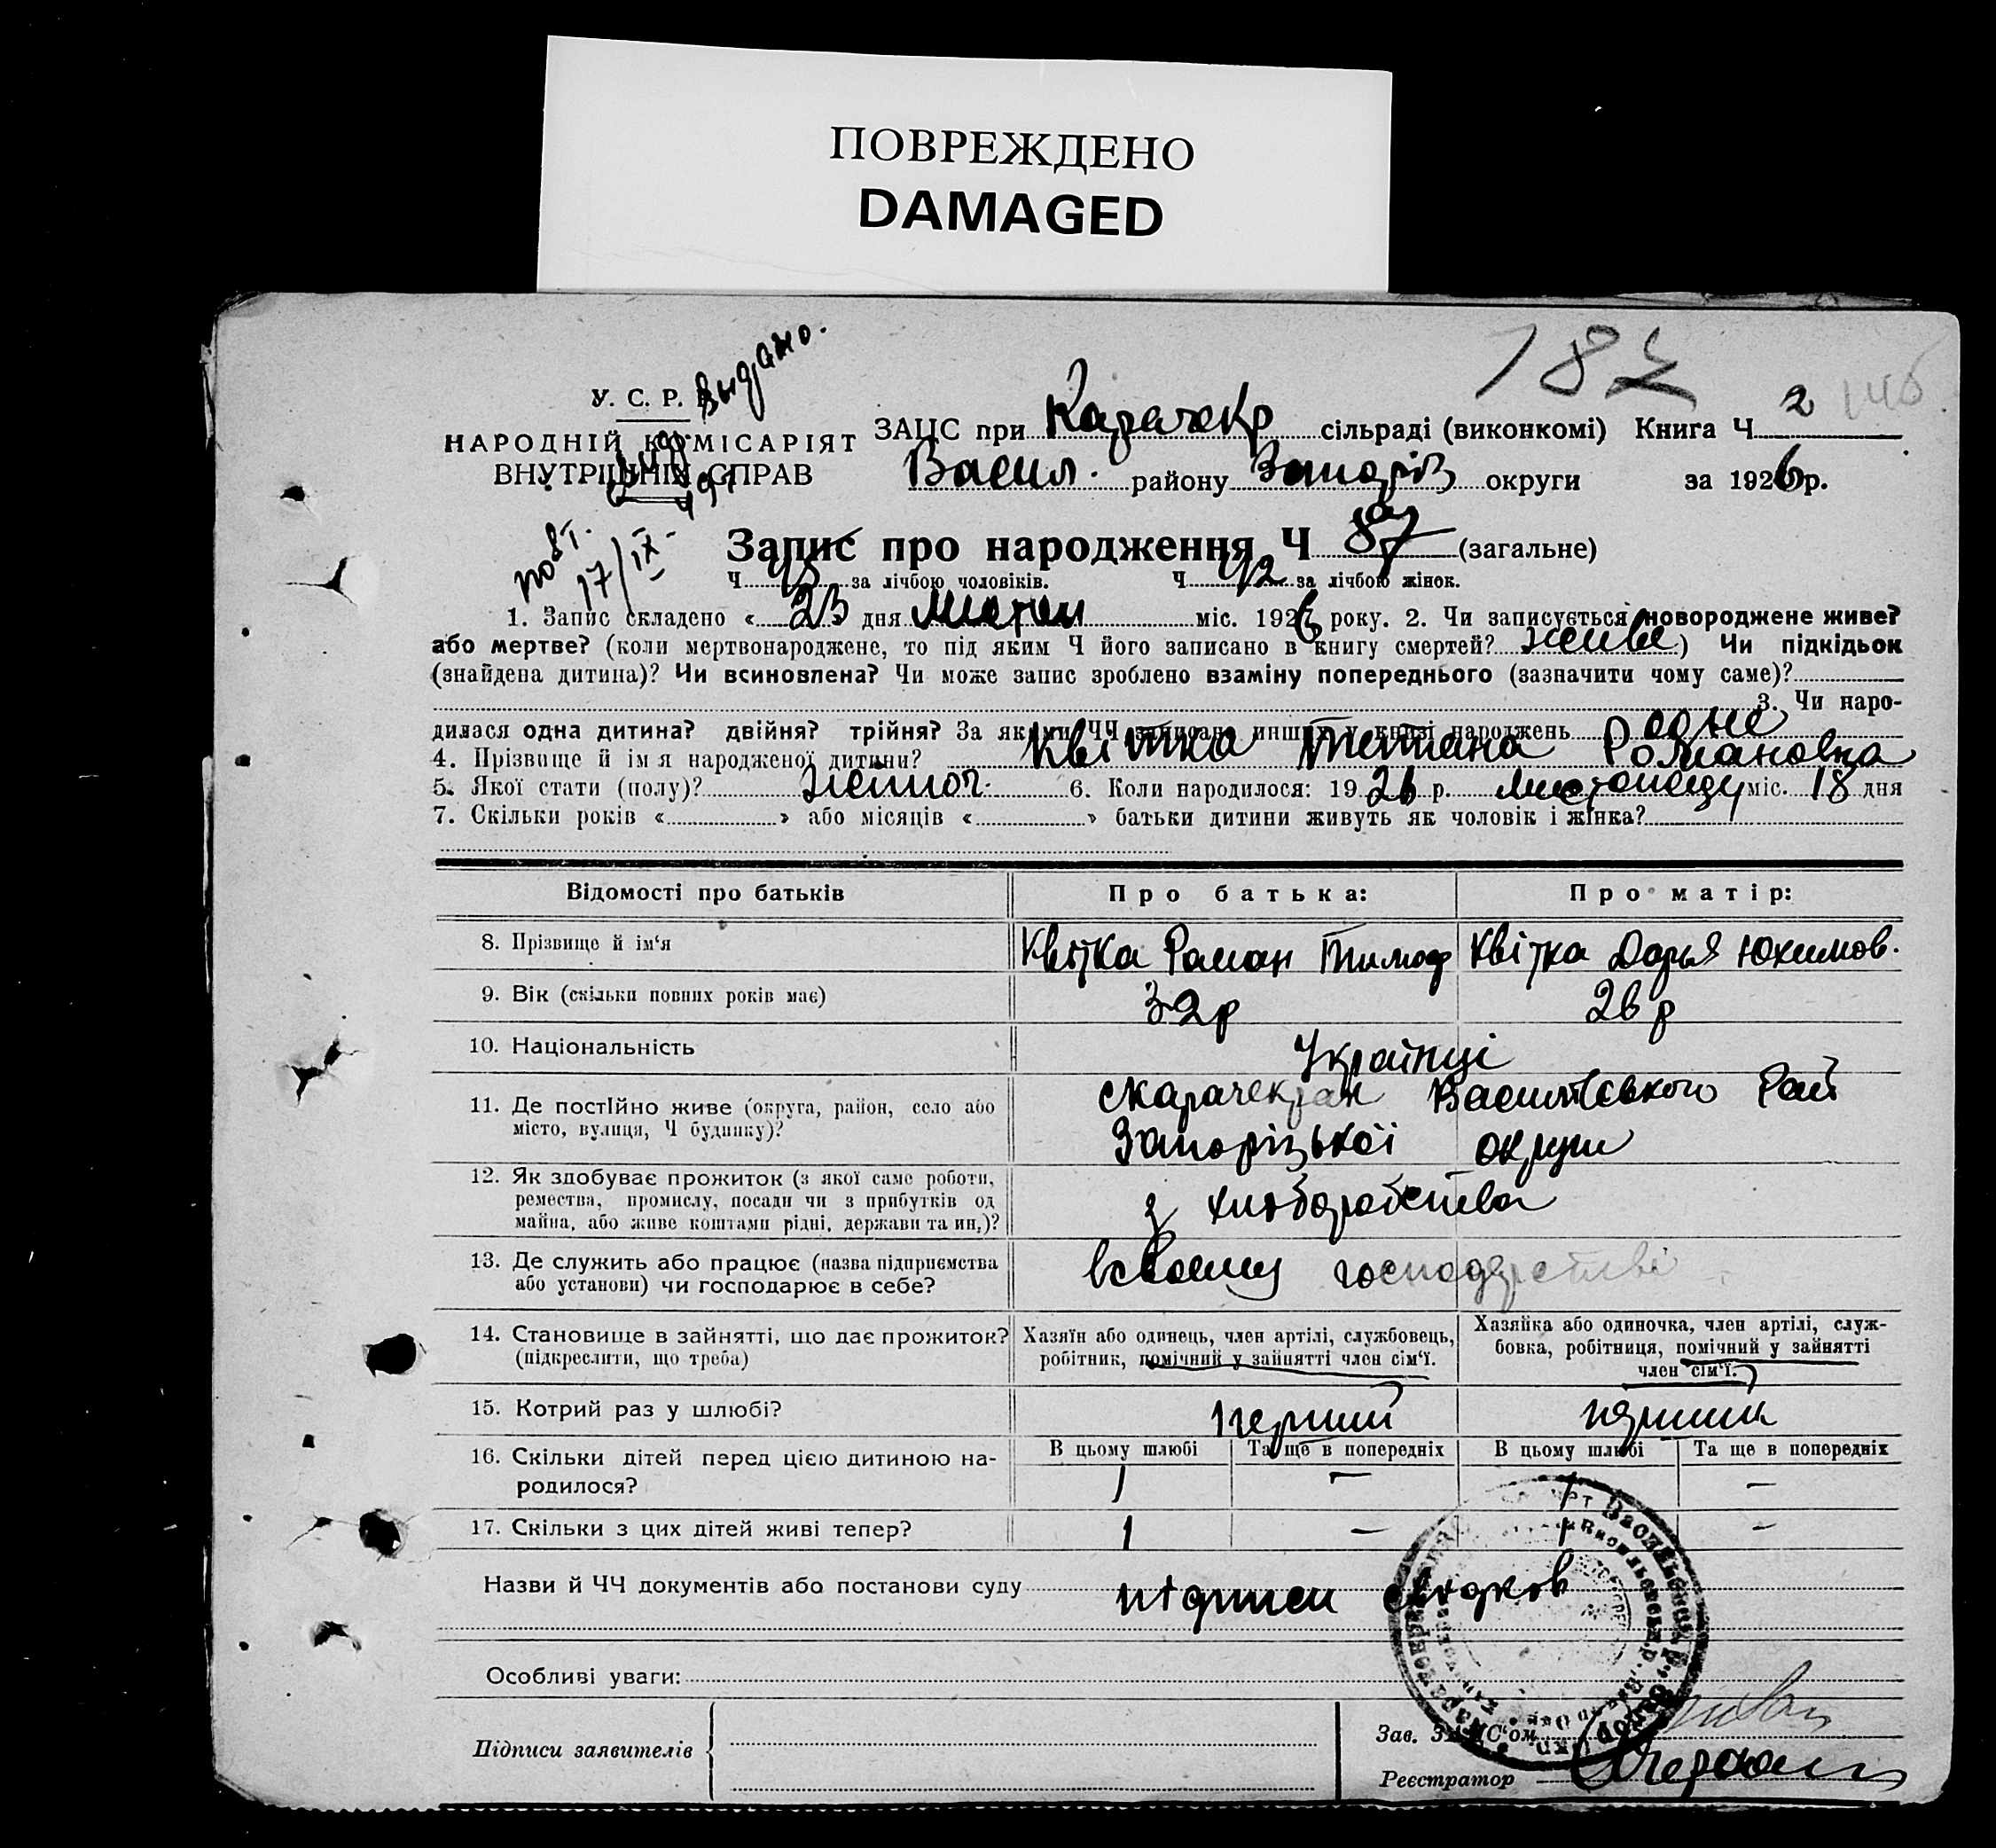 ПОВРЕЖДЕНО
DAMAGED
187 146
У. С. Р. Р. Выдано.
НАРОДНІЙ КОМІСАРІЯТ
ВНУТРІШНІХ СПРАВ
повт.
17/IX-
ЗАЦС при Карачекр сільраді (виконкомі) Книга Ч 2
Васил. району Запоріз округи за 1926 р.
Запис про народження Ч 87 (загальне)
Ч 45 за лічбою чоловіків. Ч 42 за лічбою жінок.
1. Запис складено « 23 дня листоп міс. 1926 року. 2. Чи записується новороджене живе?
або мертве? (коли мертвонароджене, то під яким Ч його записано в книгу смертей? живе) Чи підкідьок
(знайдена дитина)? Чи всиновлена? Чи може запис зроблено взаміну попереднього (зазначити чому саме)?
3. Чи наро-
дилася одна дитина? двійня? трійня? За якими ЧЧ записано инших у книзі народжень одне
4. Прізвище й ім я народженої дитини? Квітка Тетяна Романовна
5. Якої стати (полу)? жіноч. 6. Коли народилося: 1926 р. листопаду міс. 18 дня
7. Скільки років « » або місяців « » батьки дитини живуть як чоловік і жінка?
Відомості про батьків Про батька: Про матір:
8. Прізвище й ім'я Квітка Роман Тимоф Квітка Дарья Юхимов.
9. Вік (скільки повних років має) 32р 26р
10. Національність Українці
11. Де постійно живе (округа, район, село або
місто, вулиця, Ч будинку)?
с Карачекрак Василівського Рай
Запорізької округи
12. Як здобуває прожиток (з якої саме роботи,
ремества, промислу, посади чи з прибутків од
майна, або живе коштами рідні, держави та ин,)?
з хліборобства
13. Де служить або працює (назва підприємства
або установи) чи господарює в себе?
всвоему господарстві
14. Становище в зайнятті, що дає прожиток?
(підкреслити, що треба)
Хазяїн або одинець, член артілі, службовець,
робітник, помічний у зайнятті член сім'ї.
Хазяйка або одиночка, член артілі, служ-
бовка, робітниця, помічний у зайнятті
член сім'ї.
15. Котрий раз у шлюбі? перший
16. Скільки дітей перед цією дитиною на-
родилося?
В цьому шлюбі Та ще в попередніх В цьому шлюбі Та ще в попередніх
1 — 1 —
17. Скільки з цих дітей живі тепер? 1 — 1 —
Назви й ЧЧ документів або постанови суду підписи свідков
Особливі уваги:
Підписи заявителів
Зав. ЗАЦС'ом
Реєстратор